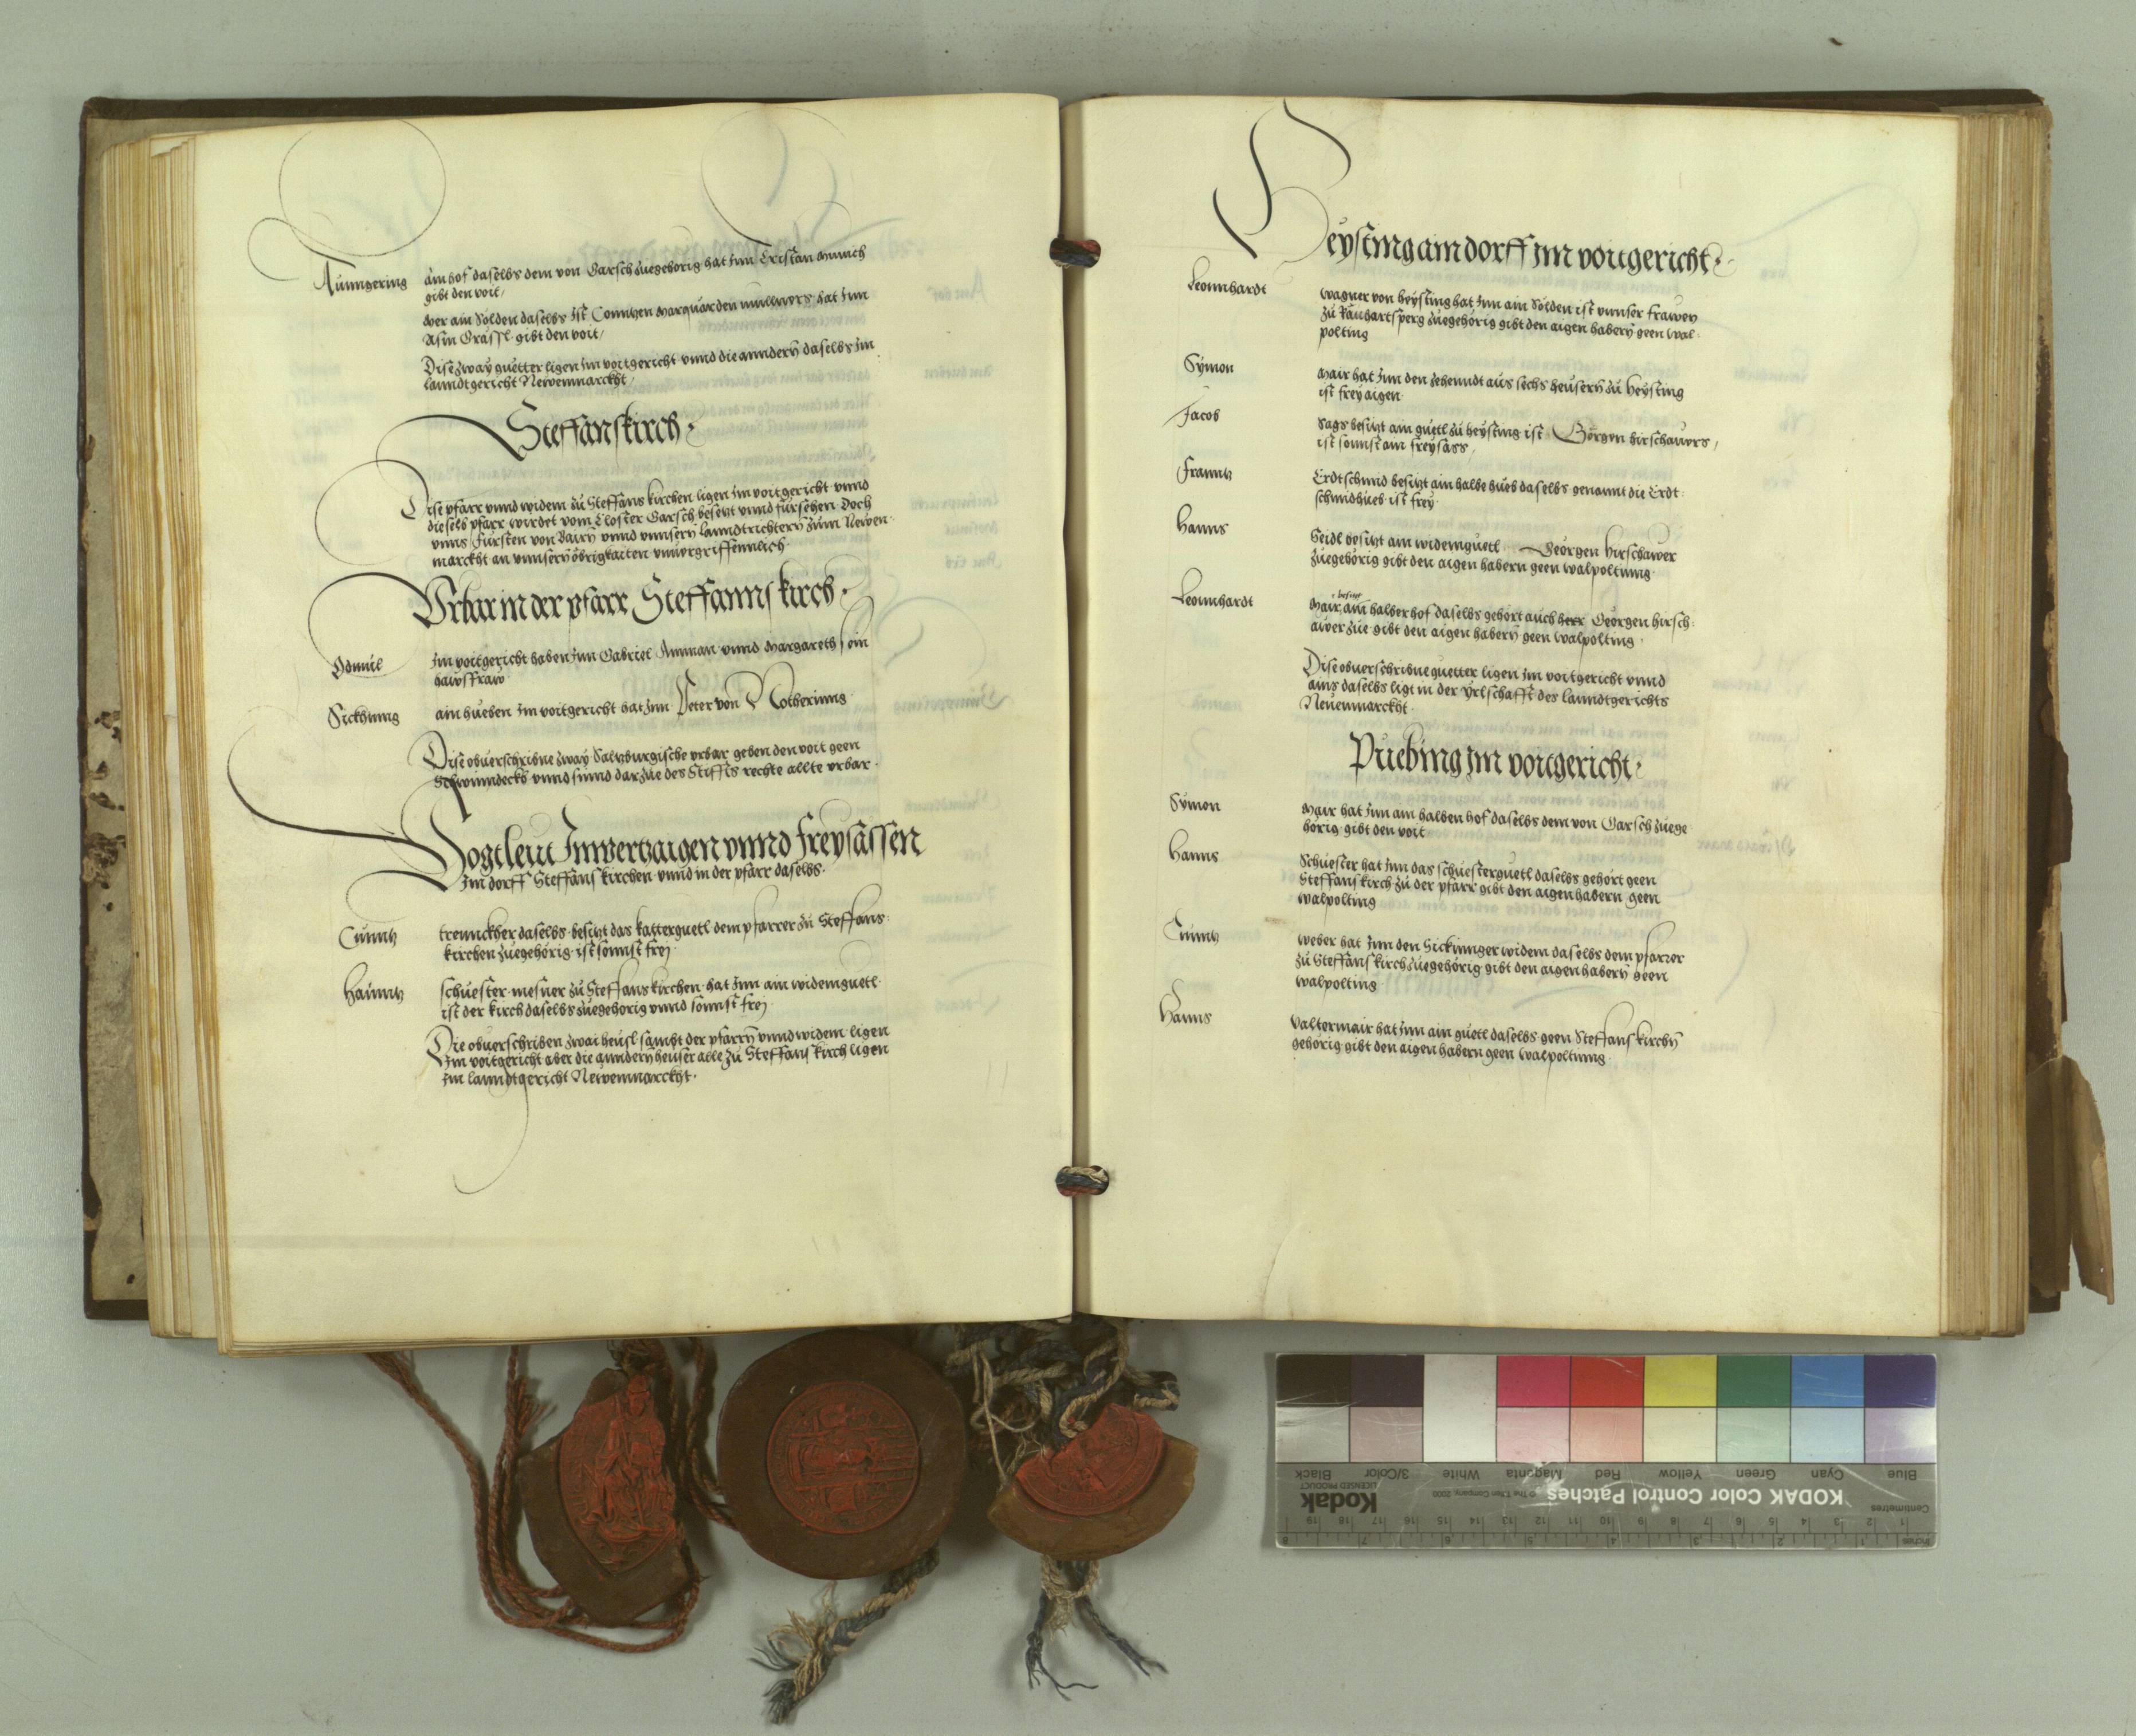 Aunngering ain hof daselbs dem von Garsch zuegehorig hat jnn Cristan Munich
gibt den voit /
Mer ain Solden daselbs ist Conntzen Marquarden mullners hat jnn
Asm Grassl gibt den voit /
Dise zway guetter ligen jm voitgericht vnnd die anndern daselbs jm
lanndtgericht Newenmarckht /
Steffanskirch
Dise pfarr vnnd widem zu Steffanskirchen ligen jm voitgericht vnnd
dieselb pfarr wirdet vom Closter Garsch besetzt vnnd fursehen Doch
vnns Fursten von Bairn vnnd vnnsern lanndtrichtern zum Newen
marckht an vnnsern obrigkaiten vnuorgriffennlich
Vrbar in der pfarr Steffannskirch
Odmul jm voitgericht haben jnn Gabriel Amman vnnd Margareth sein
hawsfraw
Sickhing ain hueben jm voitgericht hat jnn Peter von Notherinng
Dise obuerschribne zway Saltzburgische vrbar geben den voit geen
Schwinndeckh vnnd sinnd darzue des Stiffts rechte allte vrbar
Vogtleut Inwertzaigen vnnd freysassen
Jm dorff Steffanskirchen vnnd in der pfarr daselbs
Cuntz trennckher daselbs besitzt das katterguetl dem pfarrer zu Steffans
kirchen zuegehorig ist sonnst frey
Hanns schuester mesner zu Steffanskirchen hat jnn ain widemguetl
ist der kirch daselbs zuegehorig vnnd sonnst frey
Die obuerschriben zwai heusl sambt der pfarrn vnnd widem ligen
Im voitgericht aber die anndern heuser alle zu Steffanskirch ligen
jm lanndtgericht Newenmarckht
Heysting aim dorff jm voitgericht
Leonnhardt Wagner von heysting hat jnn ain Solden ist vnnser frawen
zu Ranhartsperg zuegehorig gibt den aigen habern geen Wal
polting
Symon Mair hat jnn den zehenndt aus sechs heusern zu heysting
ist frey aigen
Jacob Sags besitzt ain guetl zu heysting ist Görgen hirschauers /
ist sonnst ain freysass /
Franntz Erdtschmid besitzt ain halbe hueb daselbs genannt die Erdt
schmidhueb ist frey
Hanns Seidl besitzt ain widemguetl Georgen hirschawer
zuegehorig gibt den aigen habern geen walpolting
Leonnhardt Mair besitzt ain halber hof daselbs gehort auch herr Georgen hirsch
awer zue gibt den aigen habern geen walpolting
Dise obuerschribne guetter ligen jm voitgericht vnnd
ains daselbs ligt in der Vrlschafft des lanndtgerichts
Neuenmarckht
Puebing jm voitgericht
Symon Mair hat jnn ain halben hof daselbs dem von Garsch zuege
horig gibt den voit
Hanns Schuester hat jnn das schuesterguetl daselbs gehort geen
Steffanskirch zu der pfarr gibt den aigen habern geen
walpolting
Cuntz weber hat jnn den Sickinnger widem daselbs dem pfarrer
zu Steffanskirch zuegehorig gibt den aigen habern geen
walpolting
Hanns Valtermair hat jnn ain guetl daselbs geen Steffanskirchn
gehorig gibt den aigen habern geen Walpolting
Blue Cyan Green Yellow Red Magenta White 3/Color Black
KODAK Color Control Patches
© The Tiffen Company, 2000
Kodak
LICENSED PRODUCT
Centimetres
1 2 3 4 5 6 7 8 9 10 11 12 13 14 15 16 17 18 19
Inches
1 2 3 4 5 6 7 8